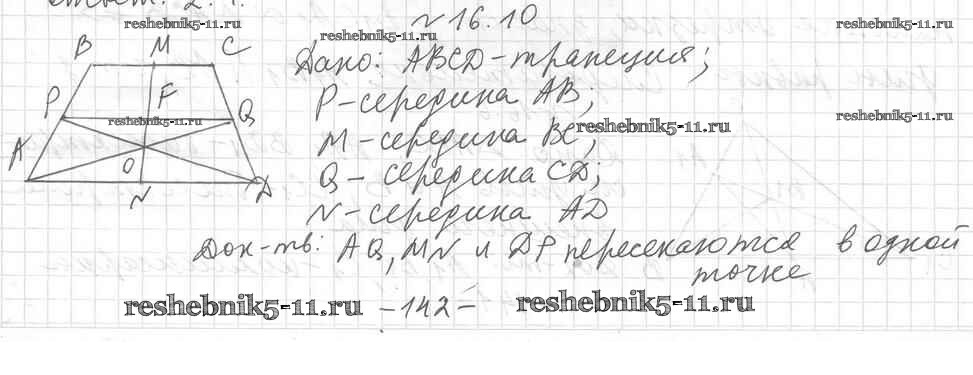 reshebnik5-11.ru
№ 16.10
reshebnik5-11.ru
reshebnik5-11.ru
B M C
Дано: ABCD - трапеция;
F
P - середина AB;
P Q
reshebnik5-11.ru
reshebnik5-11.ru
reshebnik5-11.ru
M - середина BC;
A
O
Q - середина CD;
N D
N - середина AD
Док-ть: AQ, MN и DP пересекаются в одной
точке
reshebnik5-11.ru - 142 - reshebnik5-11.ru